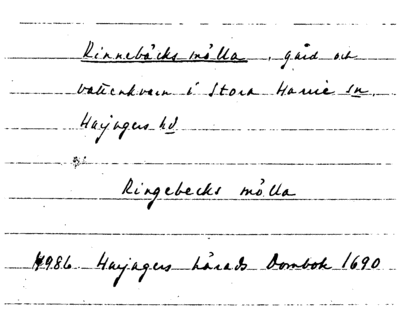 Rinnebäcks mölla, gård och
vattenkvarn i Stora Harrie sn,
Harjagers hd
Ringebecks mölla
1986 Harjagers härads Dombok 1690